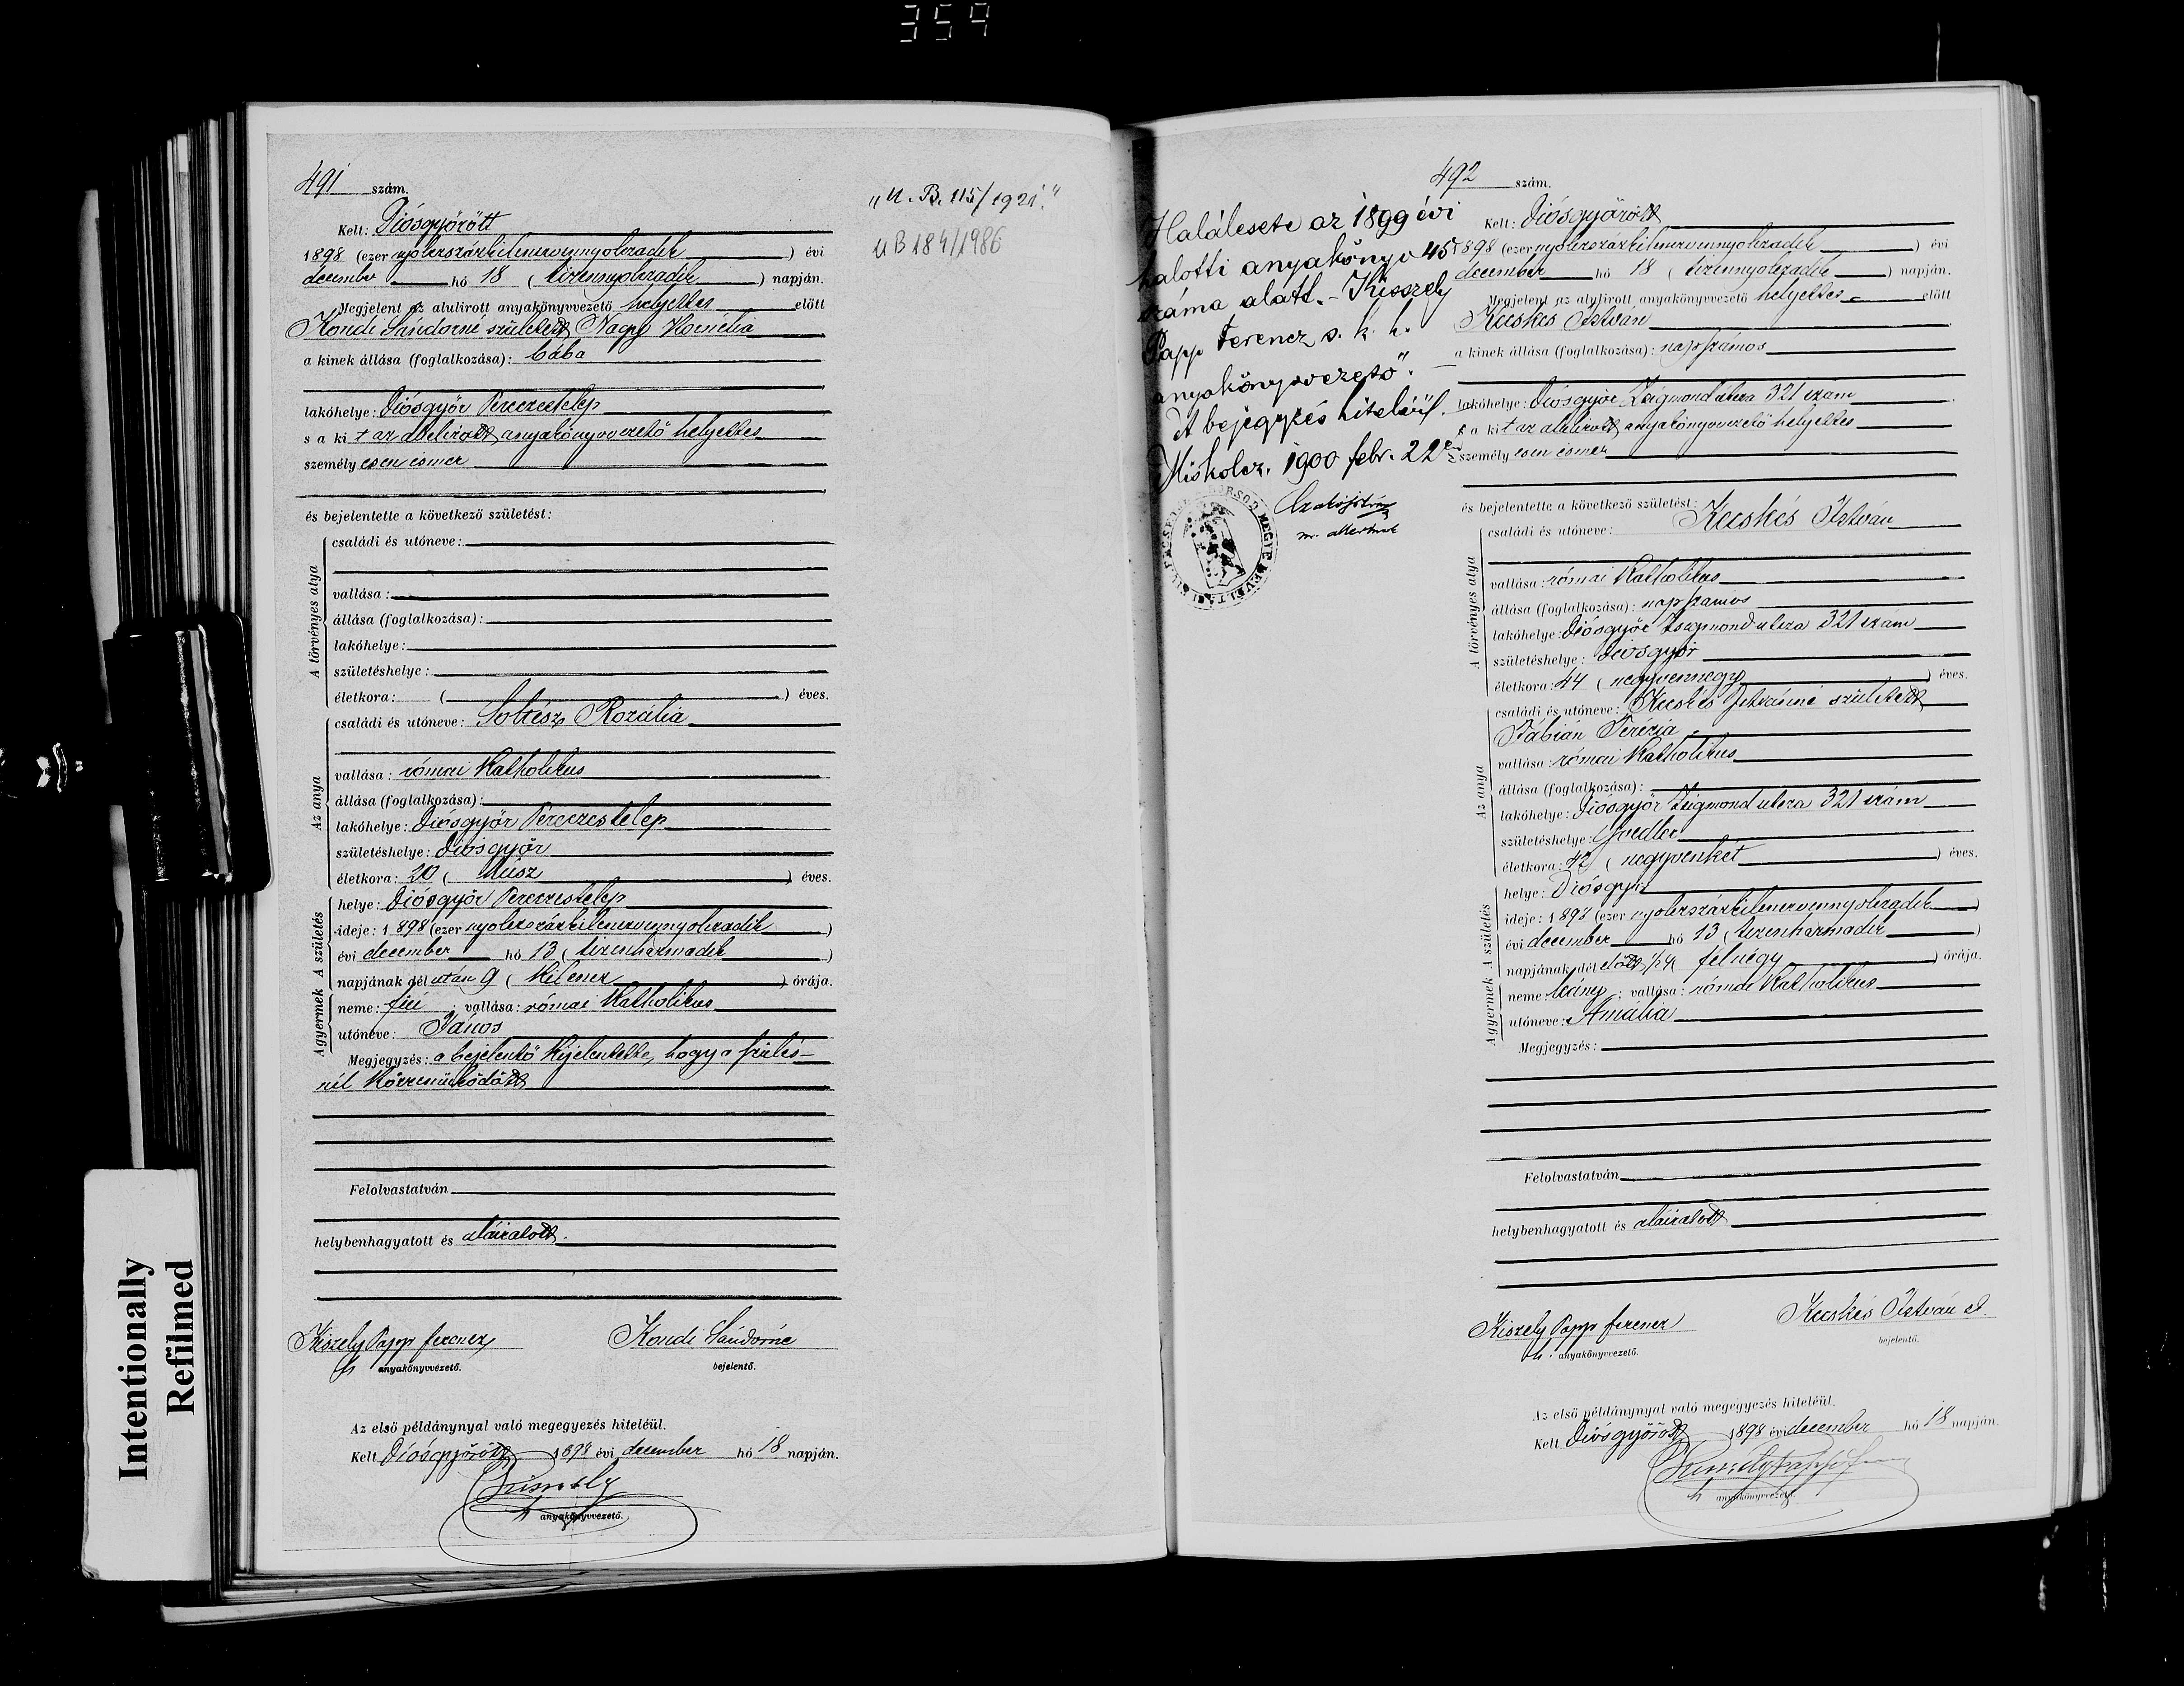 359
Intentionally
Refilmed
491 szám.
"U. B. 115/1921."
UB 184/1986
Kelt: Diósgyőrött
1898 (ezer nyolczszázkilenczvennyolczadik) évi
december hó 18 (tizennyolczadik) napján.
Megjelent az alulirott anyakönyvvezető helyettes előtt
Kondi Sándorné született Nagy Kornélia
a kinek állása (foglalkozása): bába
lakóhelye: Diósgyőr Pereczestelep
s a ki t az alulirott anyakönyvvezető helyettes
személyesen ismer
és bejelentette a következő születést:
A törvényes atya
családi és utóneve:
vallása:
állása (foglalkozása):
lakóhelye:
születéshelye:
életkora: ( ) éves.
Az anya
családi és utóneve: Soltész Rozália
vallása: római katholikus
állása (foglalkozása):
lakóhelye: Diósgyőr Pereczestelep
születéshelye: Diósgyőr
életkora: 20 (húsz) éves.
A születés
helye: Diósgyőr Pereczestelep
ideje: 1898 (ezer nyolczszázkilenczvennyolczadik)
évi december hó 13 (tizenharmadik)
napjának dél után 9 (kilencz) órája.
A gyermek
neme: fiú; vallása: római katholikus
utóneve: János
Megjegyzés: a bejelentő kijelentette, hogy a szülés-
nél közreműködött
Felolvastatván
helybenhagyatott és aláiratott.
Kiszely Papp Ferencz
h. anyakönyvvezető.
Kondi Sándorné
bejelentő.
Az első példánynyal való megegyezés hiteléül.
Kelt Diósgyőrött 1898 évi december hó 18 napján.
anyakönyvvezető.
492 szám.
Halálesete az 1899 évi
halotti anyakönyv 45
száma alatt. - Kisszely
Papp Ferencz s. k. h.
anyakönyvvezető".
A bejegyzés hiteléül.
Miskolcz. 1900 febr. 22
Kelt: Diósgyőrött
1898 (ezer nyolczszázkilenczvennyolczadik) évi
december hó 18 (tizennyolczadik) napján.
Megjelent az alulirott anyakönyvvezető helyettes előtt
Kecskés István
a kinek állása (foglalkozása): napszámos
lakóhelye: Diósgyőr Zsigmond utcza 321 szám
s a ki t az alulirott anyakönyvvezető helyettes
személyesen ismer
és bejelentette a következő születést:
A törvényes atya
családi és utóneve: Kecskés István
vallása: római katholikus
állása (foglalkozása): napszámos
lakóhelye: Diósgyőr Zsigmond utcza 321 szám
születéshelye: Diósgyőr
életkora: 44 (negyvennégy) éves.
Az anya
családi és utóneve: Kecskés Istvánné született
Fábián Terézia
vallása: római katholikus
állása (foglalkozása):
lakóhelye: Diósgyőr Zsigmond utcza 321 szám
születéshelye: Svedler
életkora: 42 (negyvenkét) éves.
A születés
helye: Diósgyőr
ideje: 1898 (ezer nyolczszázkilenczvennyolczadik)
évi december hó 13 (tizenharmadik)
napjának dél előtt 1/2 4 (fél négy) órája.
A gyermek
neme: leány; vallása: római katholikus
utóneve: Amália
Megjegyzés:
Felolvastatván
helybenhagyatott és aláiratott
Kiszely Papp Ferencz
h. anyakönyvvezető.
Kecskés István
bejelentő.
Az első példánynyal való megegyezés hiteléül.
Kelt Diósgyőrött 1898 évi december hó 18 napján.
h anyakönyvvezető.